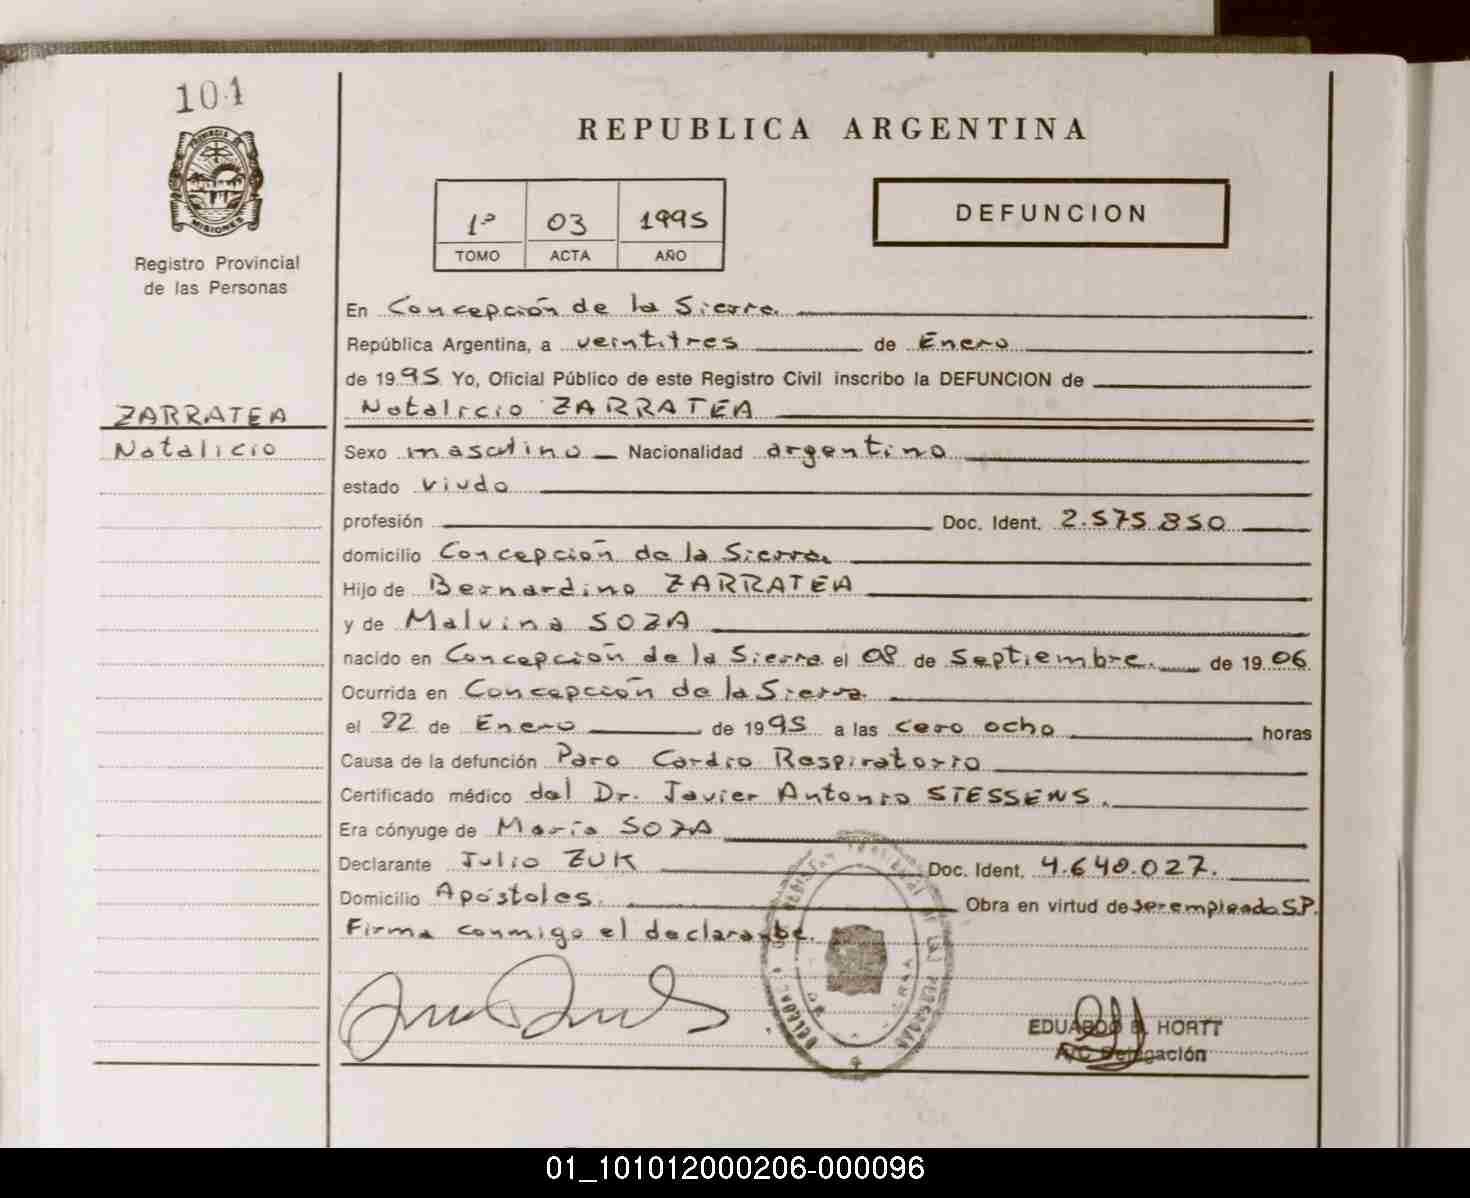 101
PROVINCIA DE
MISIONES
Registro Provincial
de las Personas
ZARRATEA
Natalicio
REPUBLICA ARGENTINA
1º 03 1995
TOMO ACTA AÑO
DEFUNCION
En Concepción de la Sierra.
República Argentina, a veintitres de Enero
de 1995 Yo, Oficial Público de este Registro Civil inscribo la DEFUNCION de
Natalicio ZARRATEA
Sexo masculino Nacionalidad argentino
estado viudo
profesión Doc. Ident. 2.575.850
domicilio Concepción de la Sierra.
Hijo de Bernardino ZARRATEA
y de Malvina SOZA
nacido en Concepción de la Sierra el 08 de Septiembre. de 1906.
Ocurrida en Concepción de la Sierra.
el 22 de Enero de 1995 a las cero ocho horas
Causa de la defunción Paro Cardio Respiratorio
Certificado médico del Dr. Javier Antonio STESSENS.
Era cónyuge de María SOZA
Declarante Julio ZUK Doc. Ident. 4.640.027.
Domicilio Apóstoles. Obra en virtud de ser empleado S.P.
Firma conmigo el declarante.
EDUARDO HORTT
A/C Delegación
01_101012000206-000096